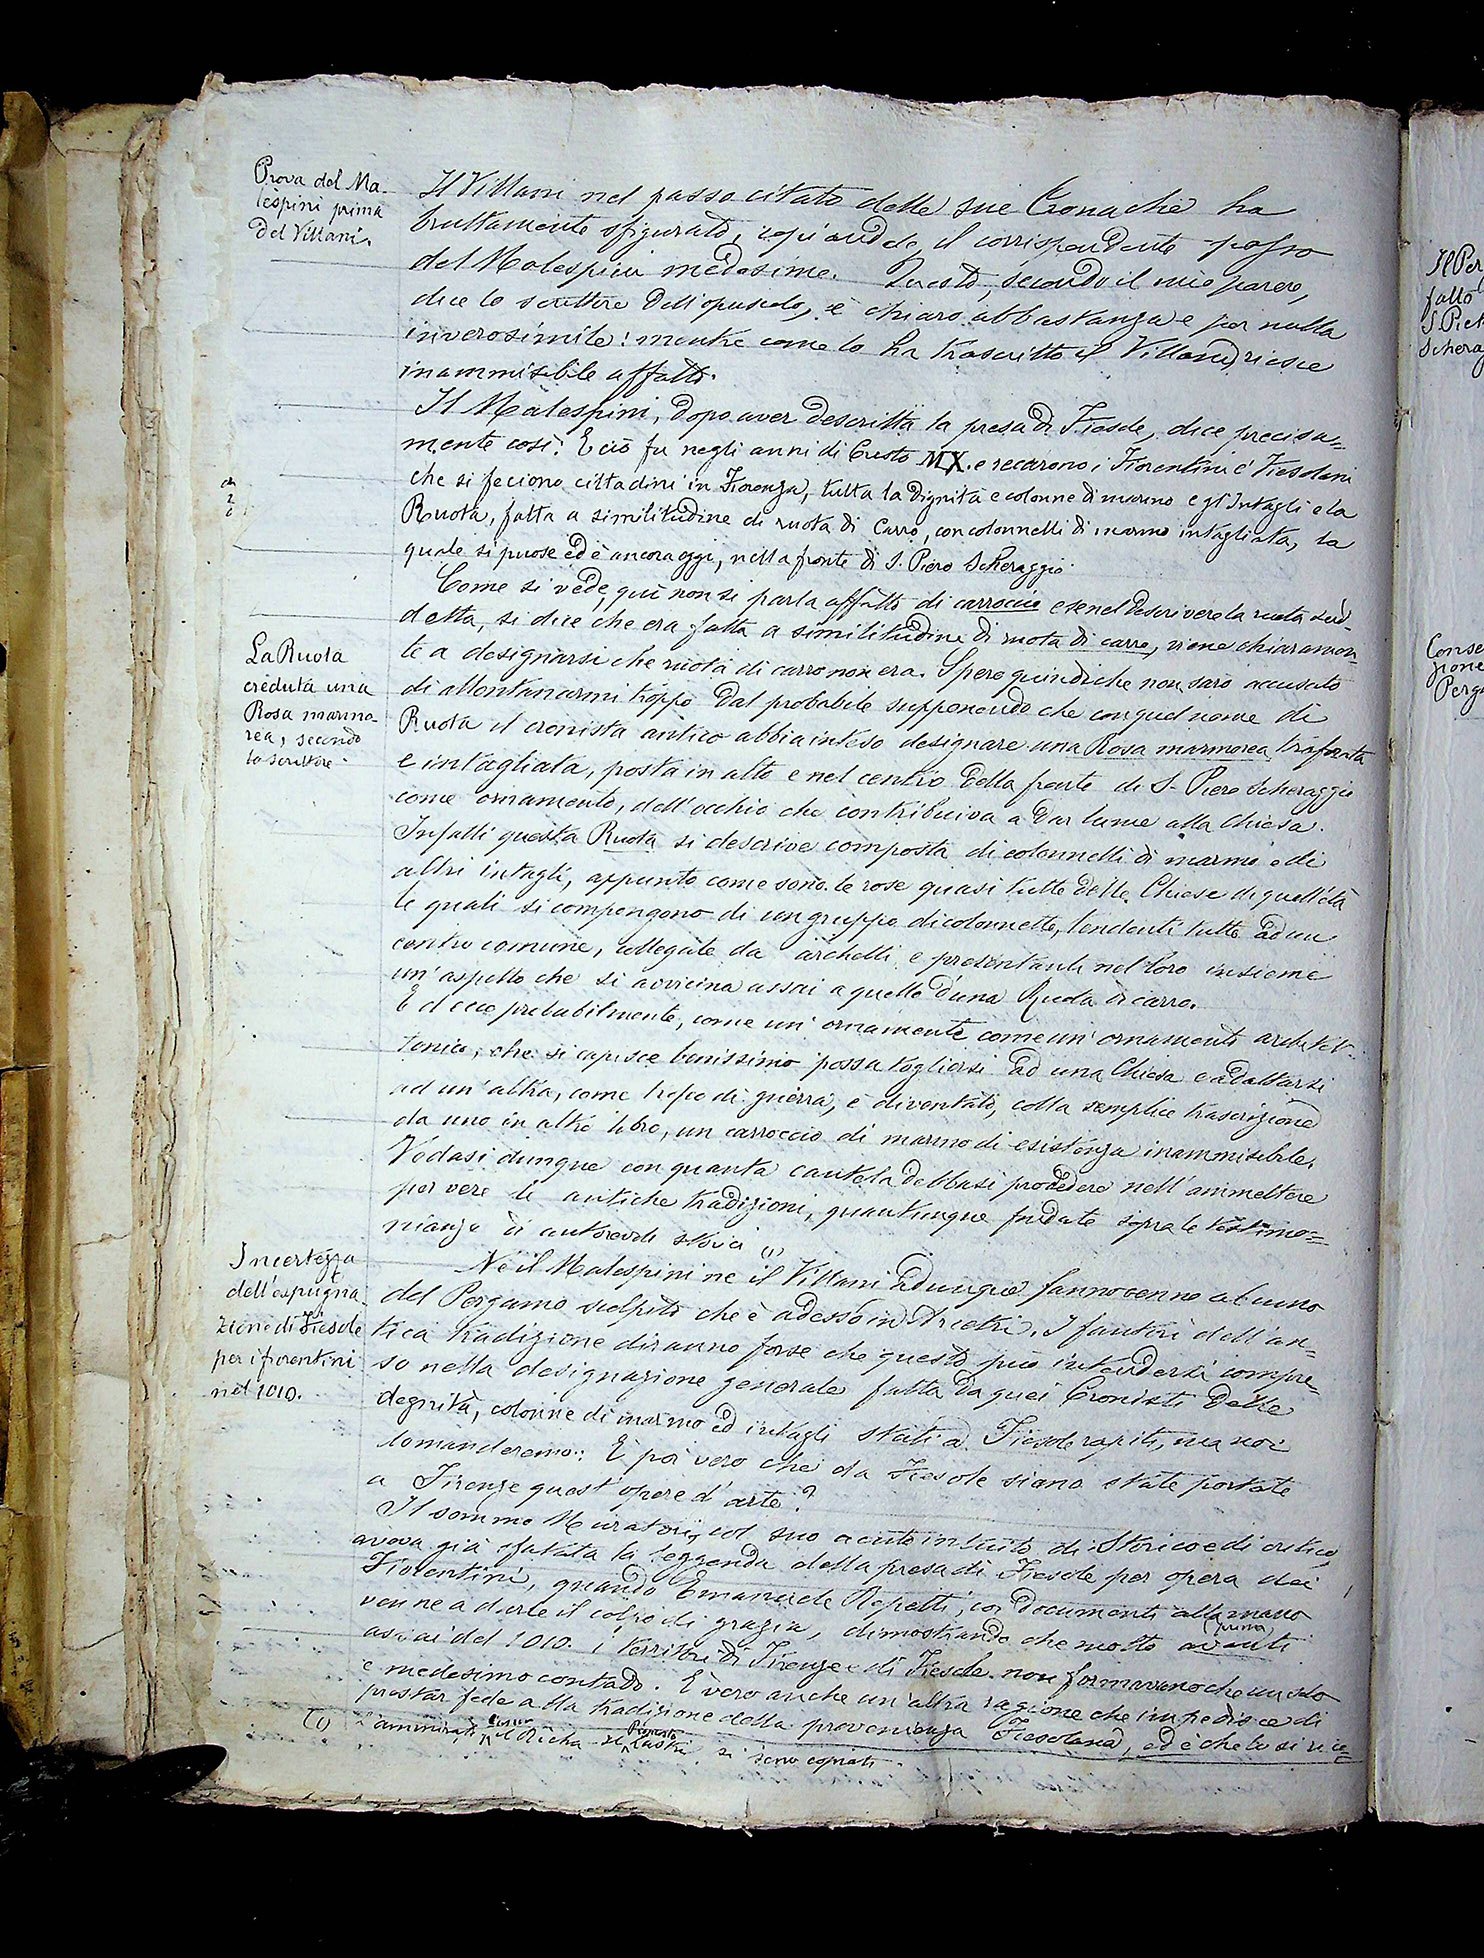 Prova del Ma-
lespini prima
del Villani.
Il Villani nel passo citato delle sue Cronache ha
bruttamente sfigurato, copiandolo, il corrispondente passo
del Malespini medesimo. Questo, secondo il mio parere,
dice lo scrittore dell'opuscolo, è chiaro abbastanza e per nulla
inverosimile: mentre come lo ha trascritto il Villani, riesce
inammisibile affatto.
Il Malespini, dopo aver descritta la presa di Fiesole, dice precisa-
mente così: E ciò fu negli anni di Cristo MX. e recarono i Fiorentini e' Fiesolani
che si feciono cittadini in Fiorenza, tutta la dignità e colonne di marmo e gl'Intagli e la
Ruota, fatta a similitudine di ruota di Carro, con colonnelli di marmo intagliata, la
quale si puose ed è ancora oggi, nella fronte di S. Piero Scheraggio.
Come si vede, quì non si parla affatto di carroccio e se nel descrivere la ruota sud-
detta, si dice che era fatta a similitudine di ruota di carro, viene chiaramen-
te a designarsi che ruota di carro non era. Spero quindi che non sarò accusato
di allontanarmi troppo dal probabile supponendo che con quel nome di
Ruota il cronista antico abbia inteso designare una Rosa marmorea, traforata
e intagliata, posta in alto e nel centro della fronte di S. Piero Scheraggio
come ornamento, dell'occhio che contribuiva a dar lume alla Chiesa.
Infatti questa Ruota si descrive composta di colonnelli di marmo e di
altri intagli, appunto come sono le rose quasi tutte delle Chiese di quell'età
le quali si compongono di un gruppo di colonnette, tendenti tutte ad un
centro comune, collegate da archetti e presentanti nel loro insieme
un'aspetto che si avvicina assai a quello d'una Ruota di carro.
Ed ecco probabilmente, come un' ornamento come un' ornamento architet-
tonico, che si capisce benissimo possa togliersi ad una Chiesa e adattarsi
ad un'altra, come trofeo di guerra, è diventato, colla semplice trascrizione
da uno in altro libro, un carroccio di marmo di esistenza inammisibile.
Vedasi dunque con quanta cautela debbasi procedere nell'ammettere
per vere le antiche tradizioni, quantunque fondate sopra le testimo=
nianze di autorevoli storici (1)
La Ruota
creduta una
Rosa marmo-
rea, secondo
lo scrittore.
Nè il Malespini nè il Villani adunque fanno cenno alcuno
del Pergamo scolpito che è adesso in Arcetri. I fautori dell'an-
tica tradizione diranno forse che questo può intendersi compre-
so nella designazione generale fatta da quei Cronisti delle
degnità, colonne di marmo ed intagli stati a Fiesole rapiti, ma noi
domanderemo: È poi vero che da Fiesole siano state portate
a Firenze quest'opere d'arte?
Incertezza
dell'espugna-
zione di Fiesole
per i fiorentini
nel 1010.
Il sommo Muratori, col suo acuto intuito di Storico e di critico,
aveva già sfatata la leggenda della presa di Fiesole per opera dei
Fiorentini, quando Emanuele Repetti, coi documenti alla mano
venne a darle il colpo di grazia, dimostrando che molto avanti
(prima)
assai del 1010. i territori di Firenze e di Fiesole non formavano che un solo
e medesimo contado. E vero anche un'altra ragione che impedisce di
prestar fede alla tradizione della provenienza Fiesolana, ed è che lo si rice=
(1) L'ammirato, il Richa il Lastri, si sono copiati.
Il Per
fatto
S. Piet
Schera
Conse
zione
Perga